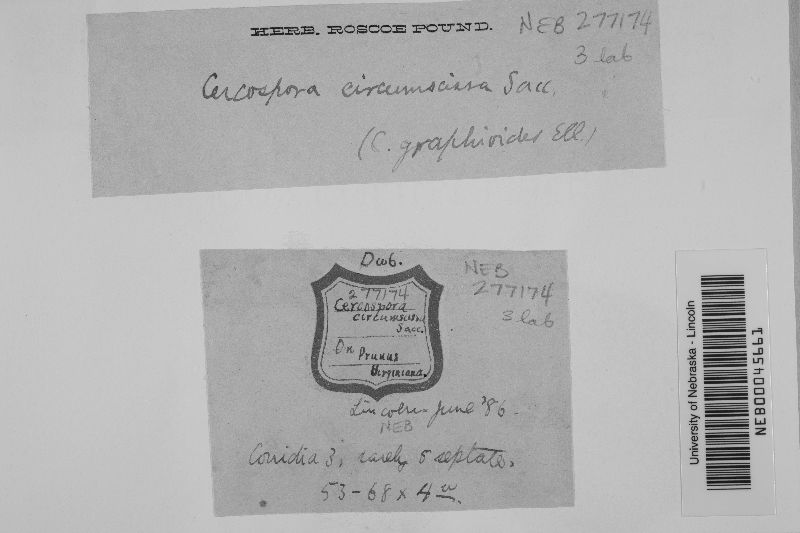 HERB. ROSCOE POUND.
NEB 277174
3 lab
Cercospora circumscissa Sacc.
(C. graphioides Ell.)
Dub.
277174
Cercospora
circumscissa
Sacc.
On Prunus
Virginiana.
NEB
277174
3 lab
Lincoln June '86.
NEB
Conidia 3, rarely 5 septate.
53-68 x 4 u.
University of Nebraska - Lincoln
NEB00045661